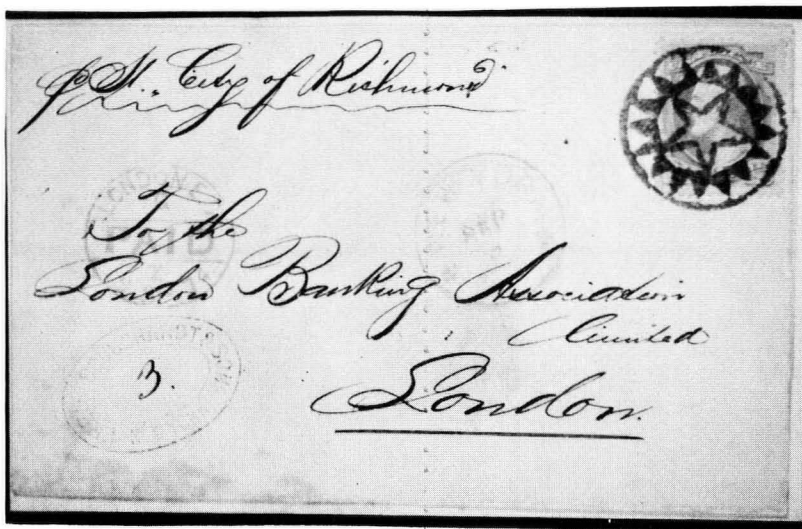 p St. City of Richmond
To the
London Banking Association
Limited
3.
London.